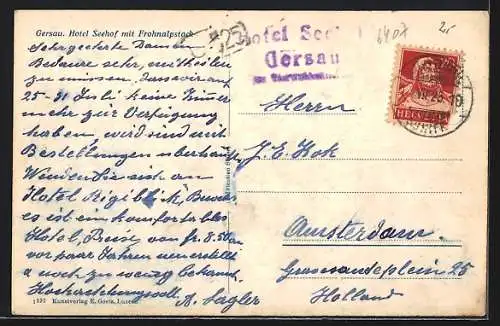 Gersau. Hotel Seehof mit Frohnalpstock
Hotel Seehof
Gersau
6407
Sehr geehrte Damen
Bedaure sehr, mitteilen
zu müssen, dass wir auf
25-31 Juli keine Zimmer
mehr zur Verfügung
haben, wird sind mit
Bestellungen überhäuft
Wenden Sie sich an
Hotel Rigiblick,
es ist ein komfortables
Hotel, Preise von fr. 8.50 an
vor paar Jahren
noch zu wenig bekannt.
Hochachtungsvoll
A. Cagler
Herrn
J. E. Kok
Amsterdam
Gravesandeplein 25
Holland
HELVETIA
1 192 Kunstverlag E. Goetz, Luzern